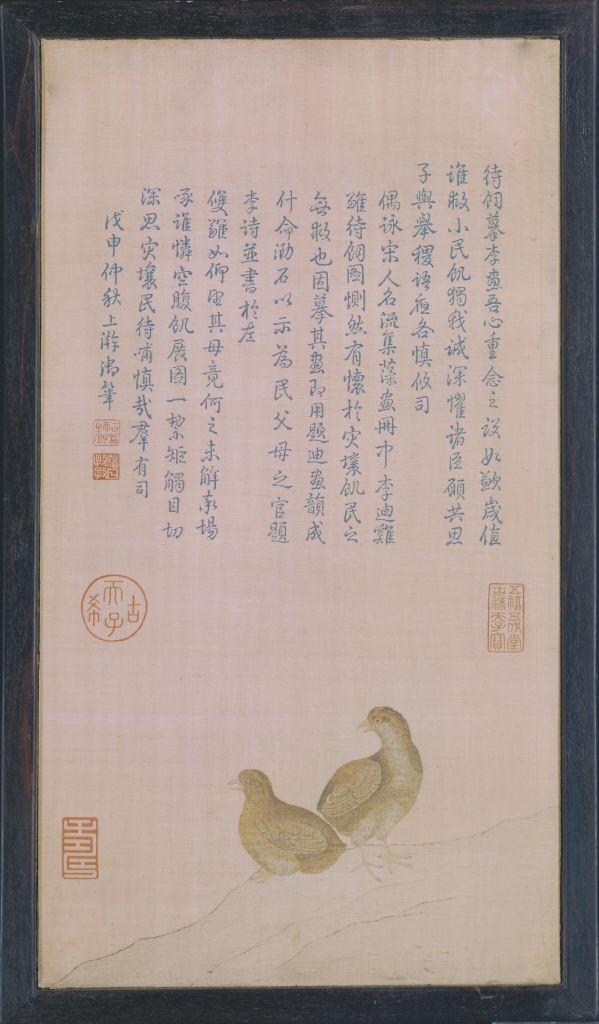 待飼摹李畫吾心重念之設如歉歲值
誰救小民飢獨我誠深懼諸臣願共思
子輿舉稷語應各慎攸司
偶詠宋人名流集藻畫冊中李迪雞
雛待飼圖惻然有懷於災壤飢民之
無救也因摹其畫即用題迪畫韻成
什命泐石以示為民父母之官題
李詩並書於左
雙雛如仰望其母竟何之未解尋場
啄誰憐空腹飢展圖一絜矩觸目切
深思災壤民待哺慎哉羣有司
戊申仲秋上澣御筆
五福五代堂古稀天子寶
古希天子